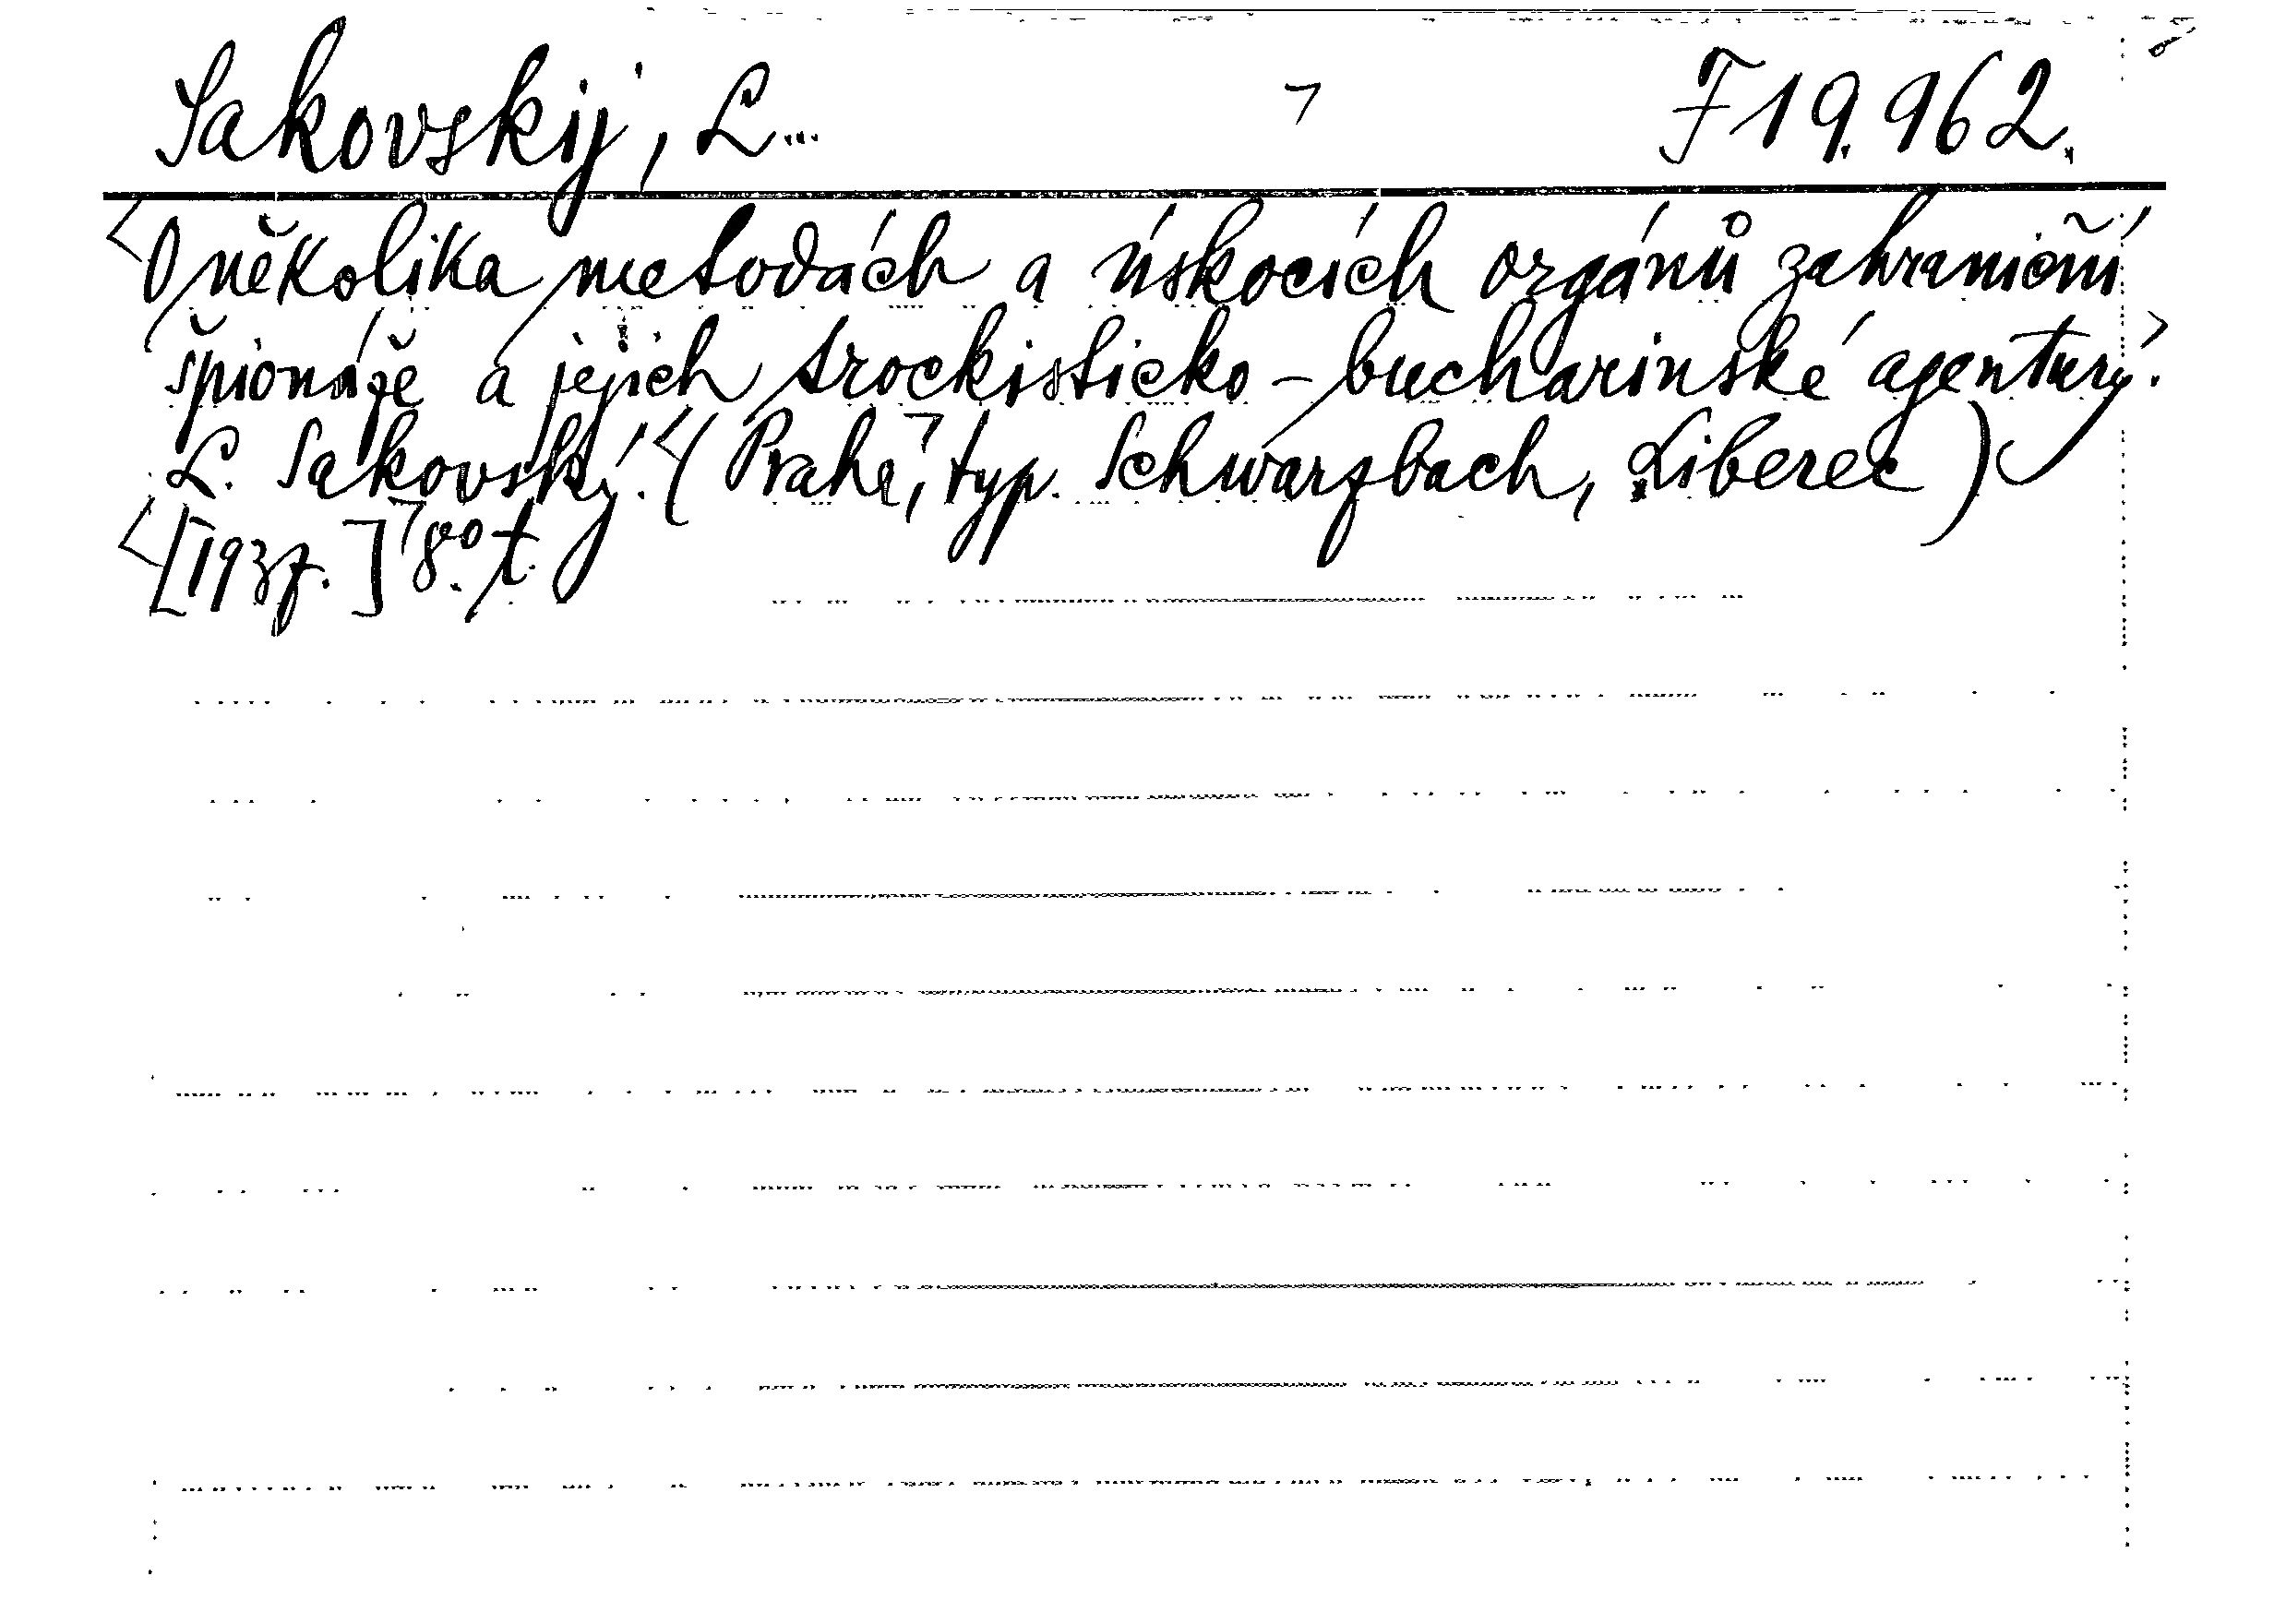 Sakovskij, L... F 19.962.
O několika metodách a úskocích orgánů zahraniční
špionáže a jejich trockisticko-bucharinské agentury.
L. Sakovský. (Praha, typ. Schwarzbach, Liberec)
[1937.] 8° t.